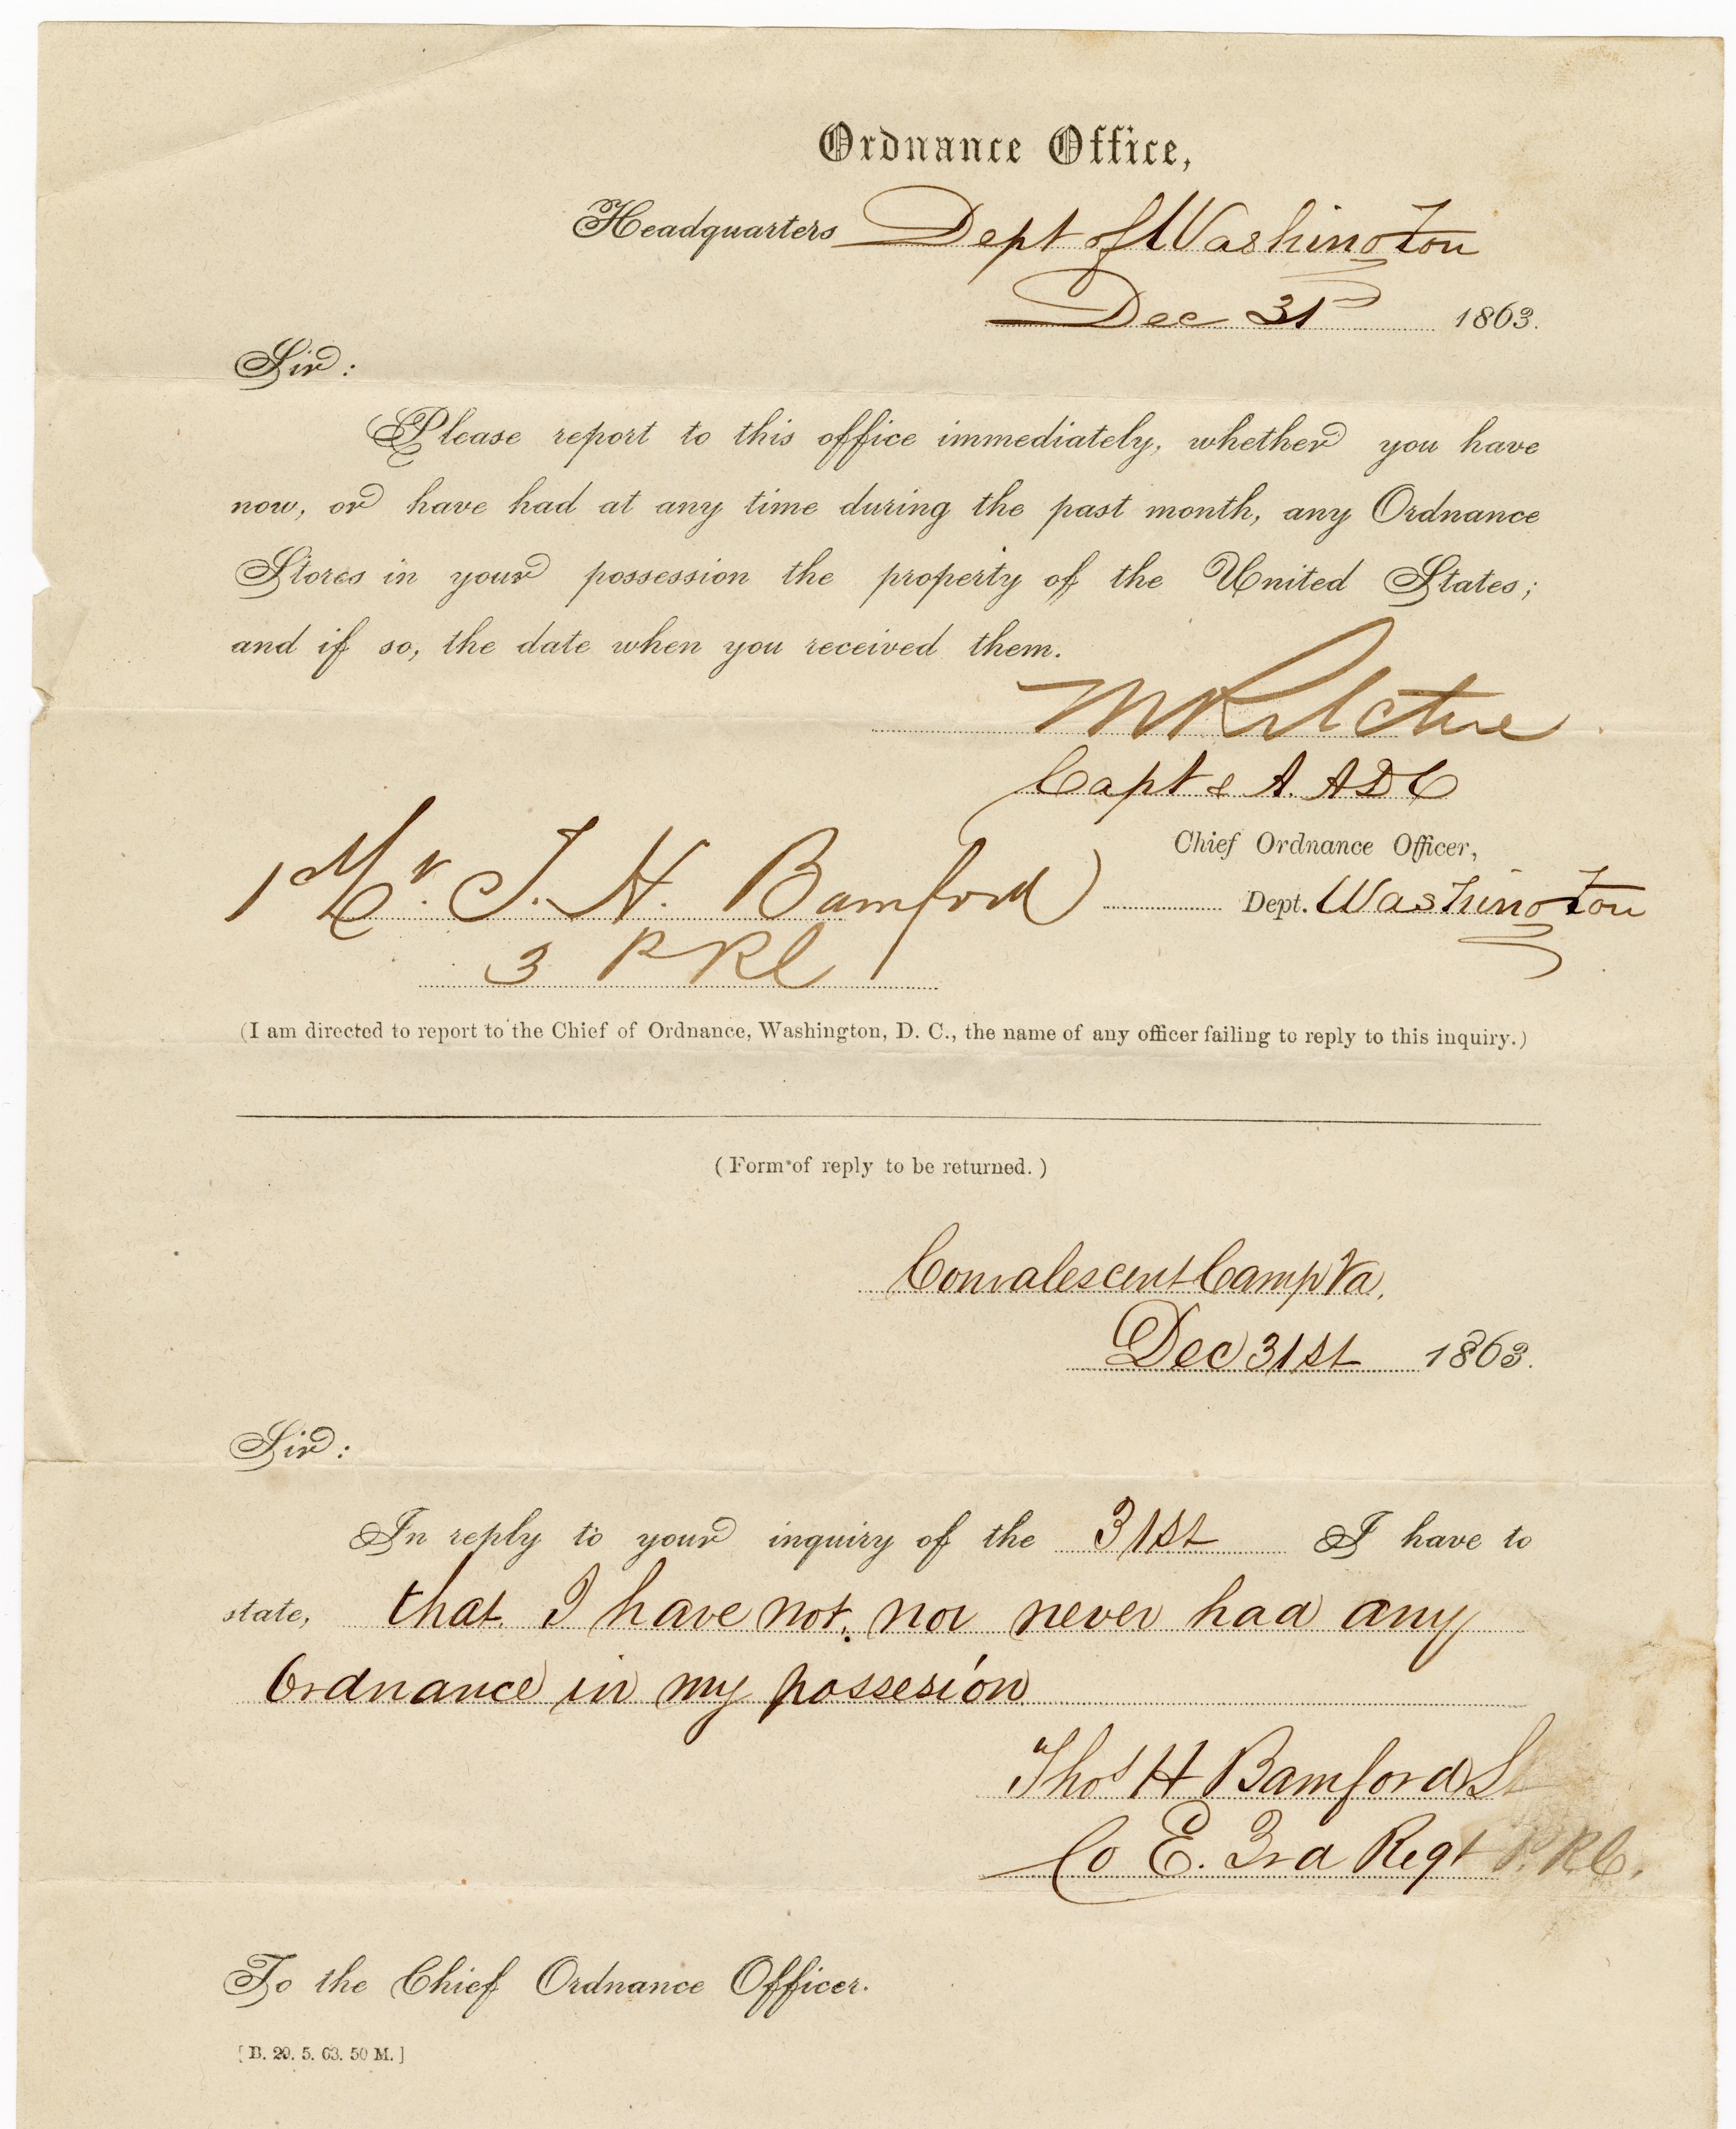 Ordnance Office,
Headquarters Dept of Washington
Dec 31 1863.
Sir:
Please report to this office immediately, whether you have
now, or have had at any time during the past month, any Ordnance
Stores in your possession the property of the United States;
and if so, the date when you received them.
Capt & A. A D C
Chief Ordnance Officer,
T. H. Bamford Dept. Washington
3 P R C
(I am directed to report to the Chief of Ordnance, Washington, D. C., the name of any officer failing to reply to this inquiry.)
(Form of reply to be returned.)
Convalescent Camp Va.
Dec 31st 1863.
Sir:
In reply to your inquiry of the 31st I have to
state, that I have not, nor never had any
Ordnance in my possesion
Thos H Bamford Lt
Co E. 3rd Regt P. R C.
To the Chief Ordnance Officer.
[B. 29. 5. 63. 50 M.]